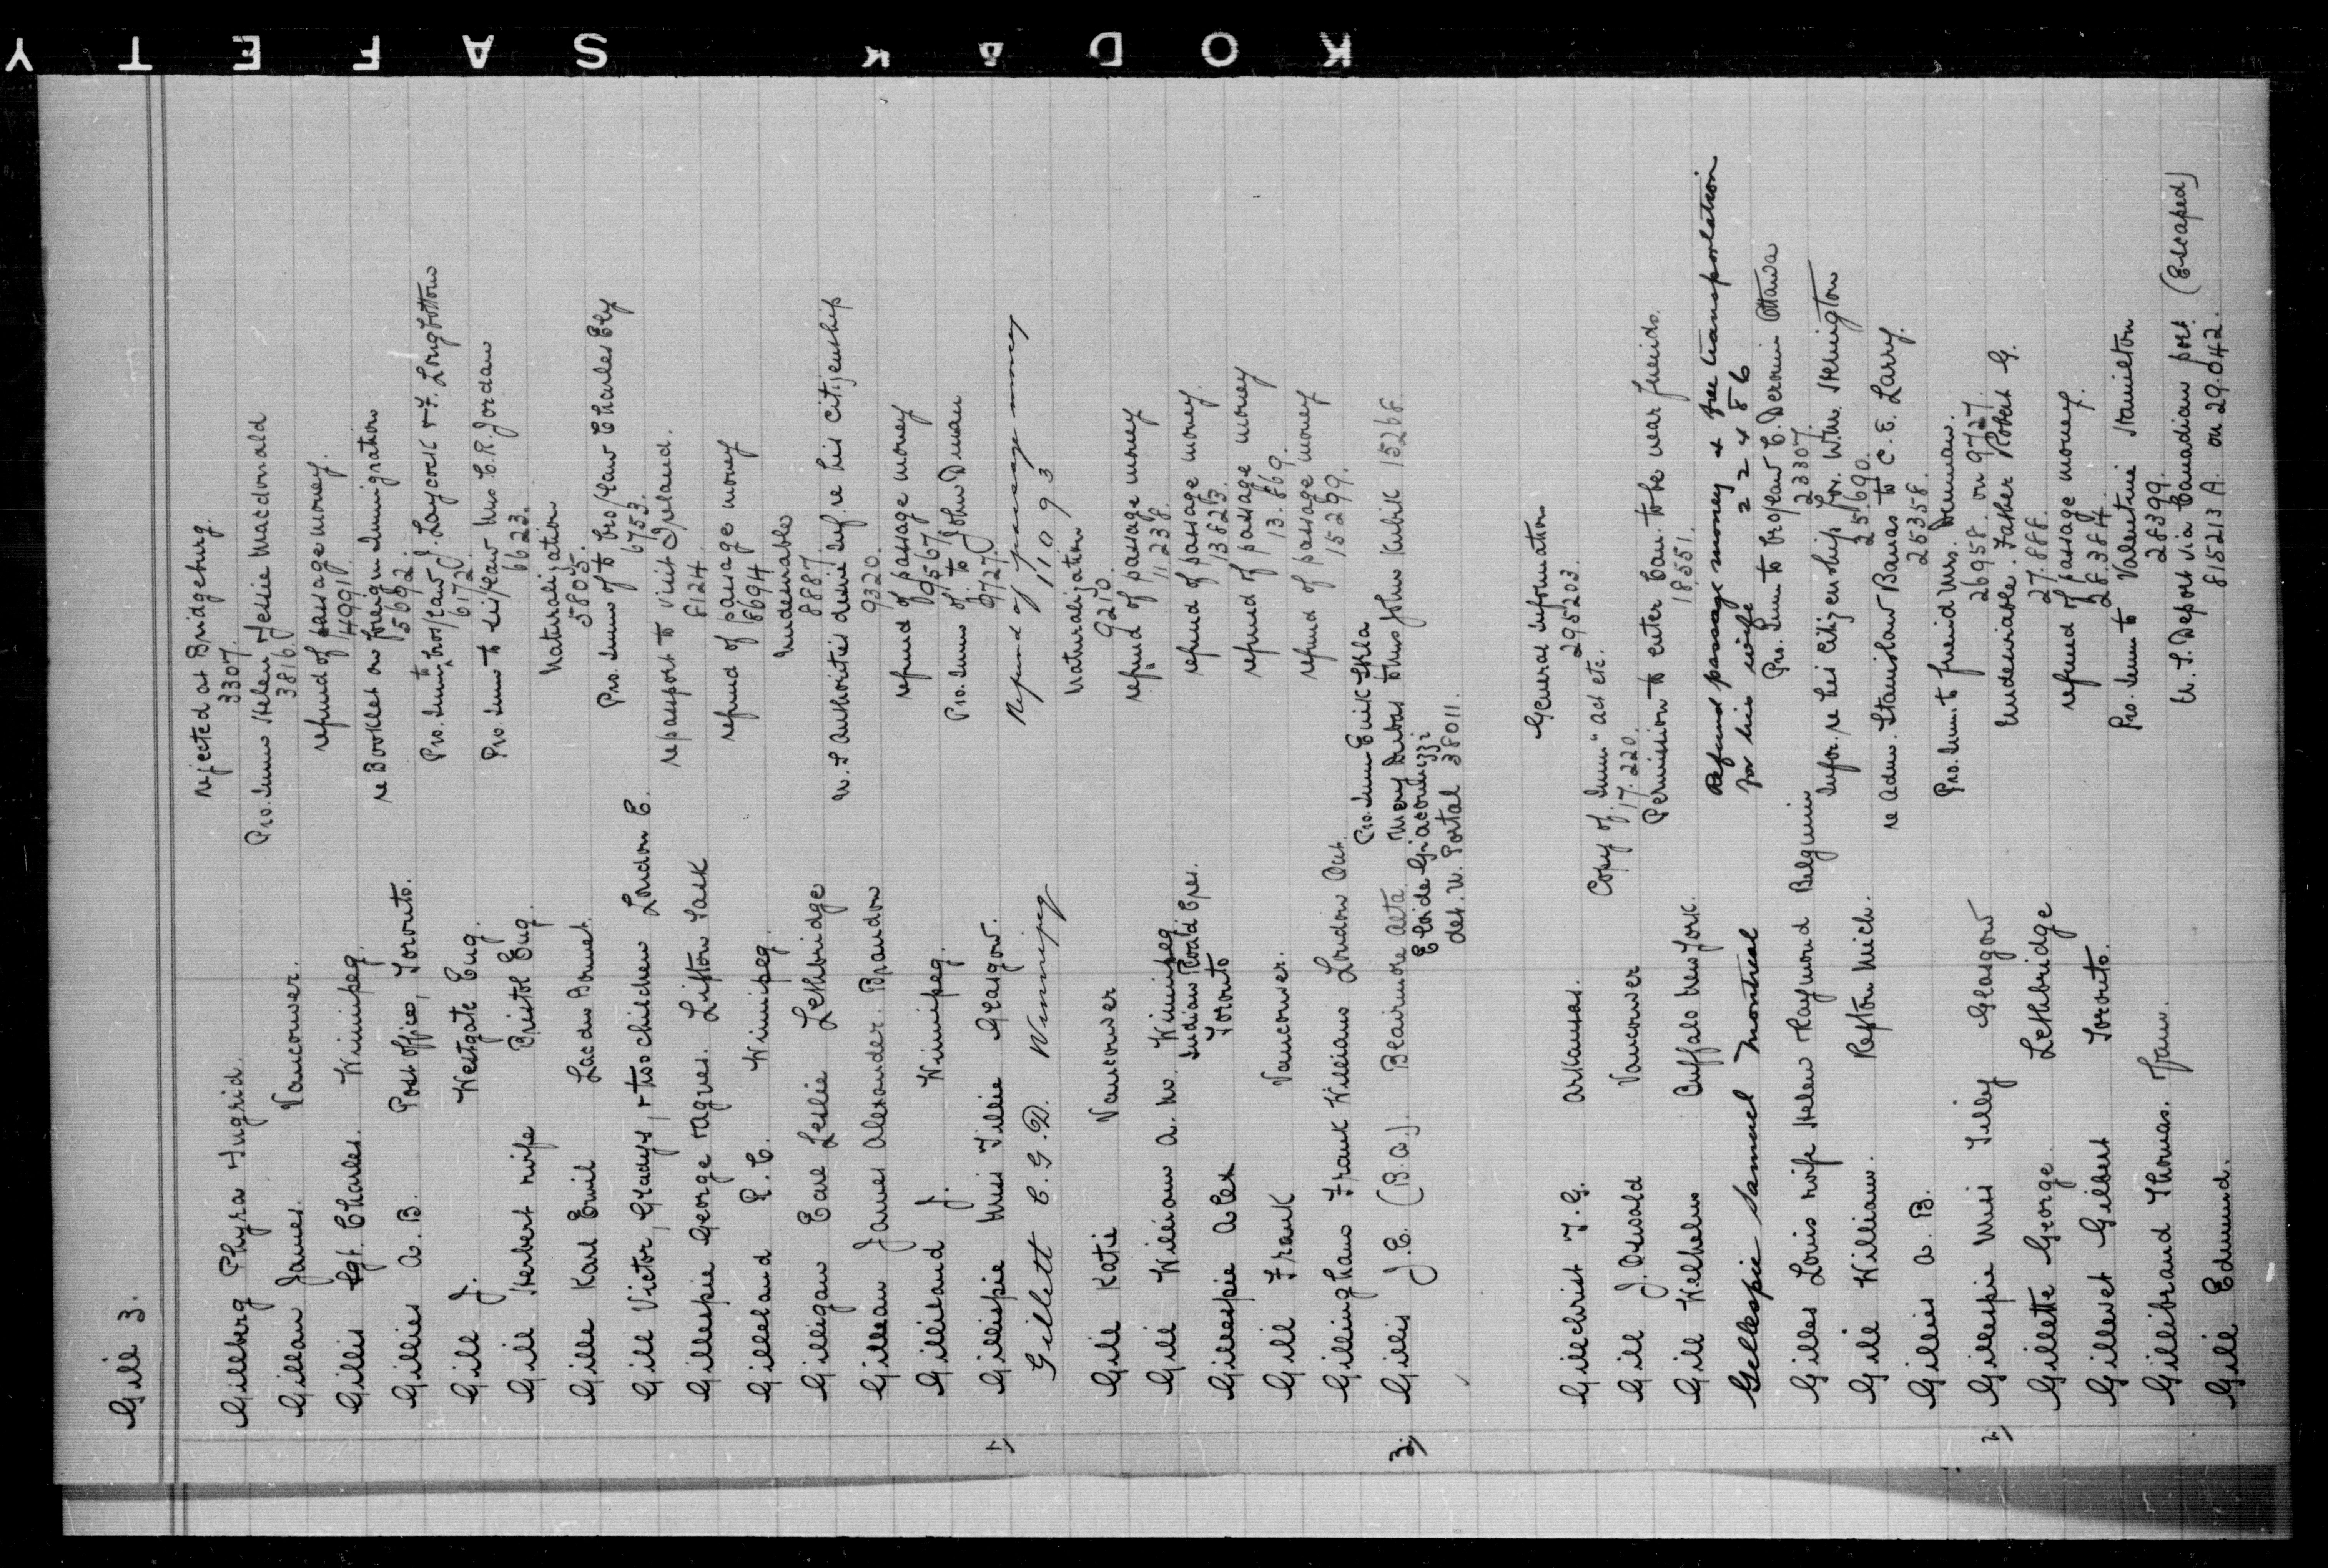 KODAK SAFETY
Gill 3.
Gillberg Thyra Ingrid. rejected at Bridgeburg.
3307.
Gillan James. Vancouver. Pro. Imm Helen Jessie Macdonald
3816.
Gillis Sgt. Charles. Winnipeg. refund of passage money.
4991
Gillies A. B. Post office, Toronto. re Booklet on foreign Immigration
5692.
Gill J. Westgate Eng. Pro. Imm to bro/law J. Laycock & F. Longbottom
6172.
Gill Herbert wife Bristol Eng. Pro. Imm to sis/law Mrs C.R. Jordan
6623.
Gille Karl Emil Lac du Bonnet. Naturalization
5805.
Gill Victor, Gladys, & two children London E. Pro. Imm of to bro/law Charles Ely
6753.
Gillespie George & Agnes. Lipton Sask re passport to visit Ireland.
8124.
Gilleland R. C. Winnipeg. refund of passage money
8694
Gilligan Earl Leslie Lethbridge undesirable
8887.
Gillean James Alexander. Brandon U. S. Authorities desire inf. re his citizenship
9320.
Gillileand J. Winnipeg. refund of passage money
9567
1) Gillispie Miss Tillie Glasgow. Pro. Imm of to John Duman
9727.
Gillett C. G. D. Winnipeg Refund of passage money
11093
Gill Katie Vancouver Naturalization
9210.
Gill William A. W. Winnipeg refund of passage money
11238.
Gillespie Alex Indian Road Cres. Toronto refund of passage money.
13823.
Gill Frank Vancouver. refund of passage money
13.869.
Gillingham Frank William London Ont. refund of passage money
15299.
3) Gillis J.E. (B.A.) Beairmore Alta. Pro. Imm Erik Skla
Mary Dubas John Kubik 15268
Eloide Giacomuzzi
det. W. Portal 38011.
Gillchrist T. G. Arkansas. General Information
295203.
Gill J. Oswald Vancouver Copy of Imm" act etc.
17.220.
Gill Wilhelm Buffalo New York. Permission to enter Can. to be near friends.
18551.
Gillespie Samuel Montreal Refund passage money & free transportation
for his wife 22486
Gilles Louis wife Helen Raymond Belgium Pro. Imm to bro/law C. Deromi Ottawa
23307.
Gill William. Repton Mich. Infor. re his citizenship for. Wm. Skington
25.690.
Gillies A. B. re Adm. Stanislaw Banas to C. E. Larry.
25358.
2) Gillespie Miss Tilly Glasgow Pro. Imm. to friend Mrs. Denman.
26958 on 9727.
Gillette George. Lethbridge Undesirable. Father Robert G.
27.888.
Gillevet Gilbert Toronto. refund of passage money.
28.384.
Gillibrand Thomas. Pro. Imm to Valentine Hamilton
28399.
Gill Edmund. U. S. Deport via Canadian port. (Escaped)
815213 A. on 29.042.